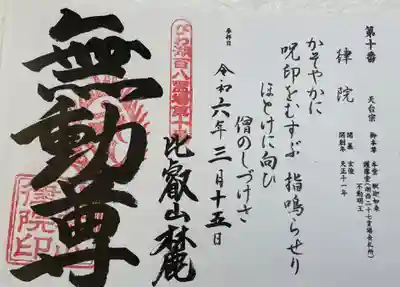 第十番
律院 天台宗
御本尊 本堂 釈迦如来
不動明王
開基
開創年 天正十一年
かそやかに
呪印をむすぶ 指鳴らせり
ほとけに向ひ
僧のしづけさ
参拝日 令和六年三月十五日
びわ湖百八霊場第十番
比叡山麓
無動尊
律院印